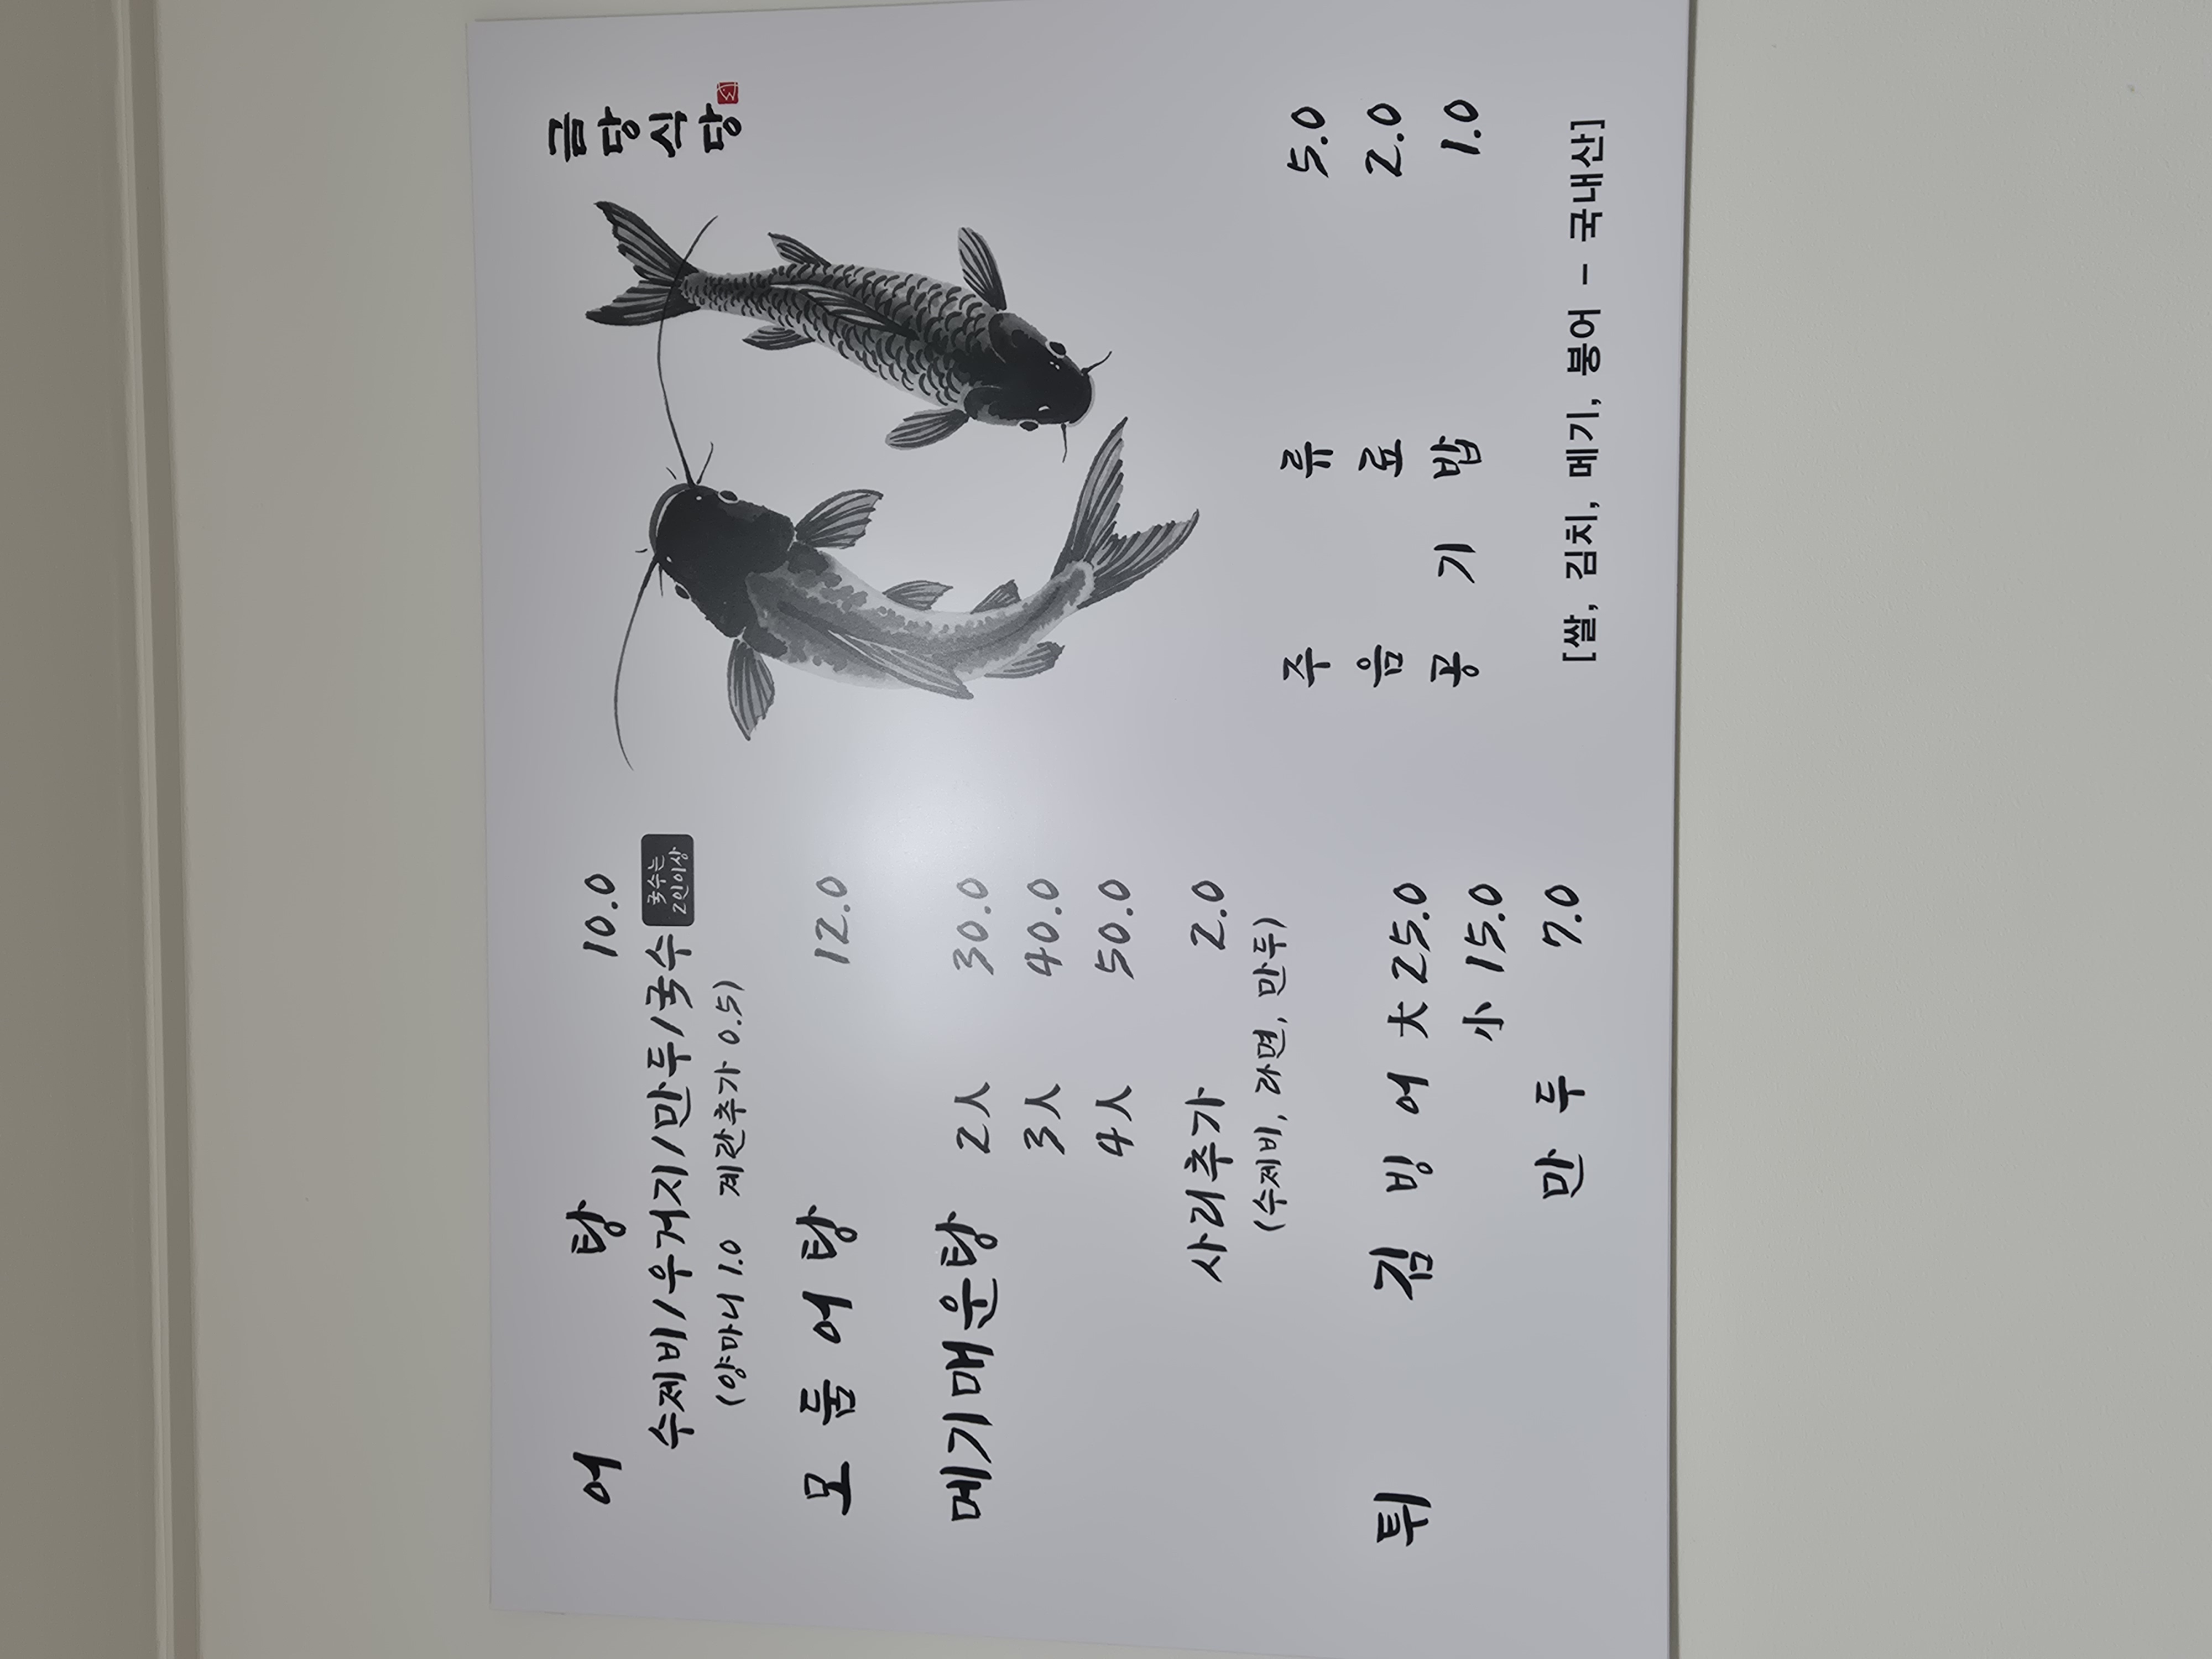 금당식당
어 탕 10.0
수제비/우거지/만두/국수 국수는 2인이상
(양마니 1.0 계란추가 0.5)
모 듬 어 탕 12.0
메기매운탕 2人 30.0
3人 40.0
4人 50.0
사리추가 2.0
(수제비, 라면, 만두)
튀 김 빙 어 大 25.0
小 15.0
만 두 7.0
주 류 5.0
음 료 2.0
공 기 밥 1.0
[쌀, 김치, 메기, 붕어 - 국내산]